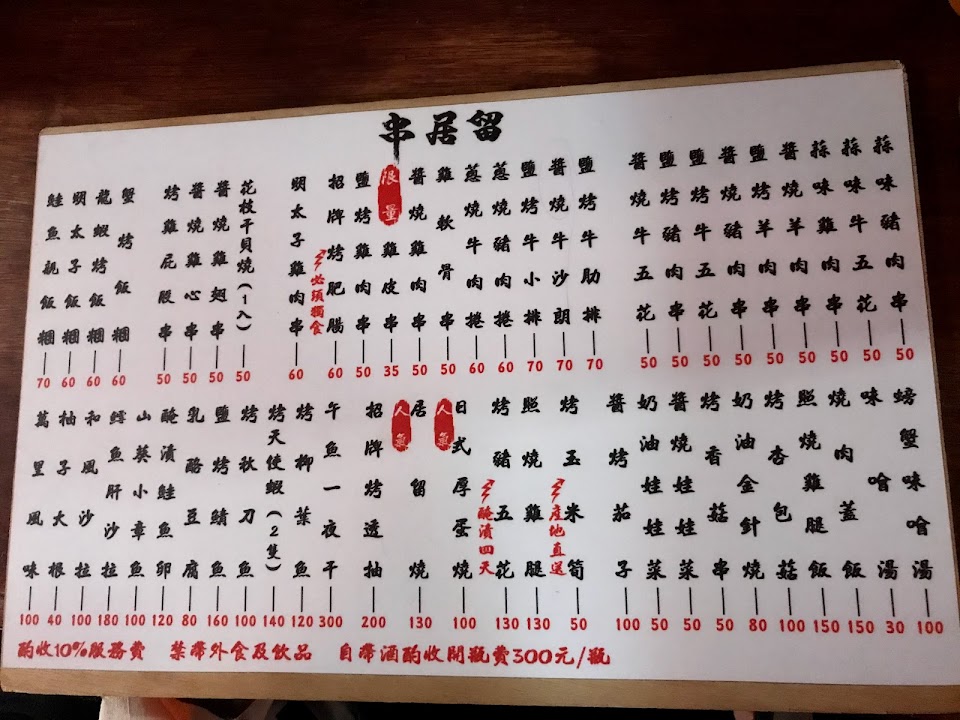 串居留
蒜味豬肉串 50
蒜味牛五花 50
蒜味雞肉串 50
醬燒羊肉串 50
鹽烤羊肉串 50
醬燒豬肉串 50
鹽烤牛五花 50
鹽烤豬肉串 50
醬燒牛五花 50
鹽烤牛肋排 70
醬燒牛沙朗 70
鹽烤牛小排 70
蔥燒豬肉捲 60
蔥燒牛肉捲 60
雞軟骨 50
醬燒雞肉串 50
限量 雞皮串 35
鹽烤雞肉串 50
招牌烤肥腸 60
必須獨食
明太子雞肉串 60
花枝干貝燒(1入) 50
醬燒雞翅串 50
醬燒雞心串 50
烤雞屁股串 50
蟹烤飯糰 60
龍蝦烤飯糰 60
明太子飯糰 60
鮭魚親飯糰 70
螃蟹味噌湯 100
味噌湯 30
燒肉蓋飯 150
照燒雞腿飯 150
烤杏包菇 100
奶油金針燒 80
烤香菇串 50
醬燒娃娃菜 50
奶油娃娃菜 50
醬烤茄子 100
烤玉米筍 50
產地直送
照燒雞腿 130
烤豬五花 130
醃漬四天
日式厚蛋燒 100
人氣
居留燒 130
人氣
招牌烤透抽 200
午魚一夜干 300
烤柳葉魚 120
烤天使蝦(2隻) 140
烤秋刀魚 100
鹽烤鯖魚 160
乳酪豆腐 80
醃漬鮭魚卵 120
山葵小章魚 100
鱈魚肝沙拉 180
和風沙拉 100
柚子大根 40
萬里風味 100
酌收10%服務費 禁帶外食及飲品 自帶酒酌收開瓶費300元/瓶